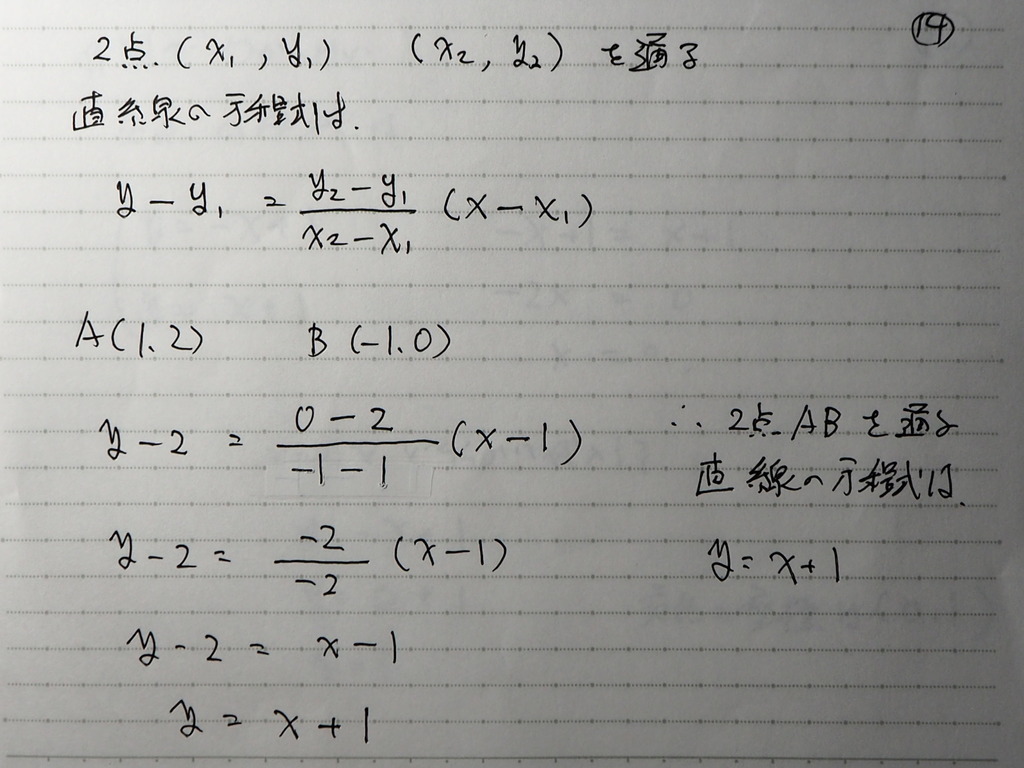 ⑭
2点 (x₁, y₁) (x₂, y₂) を通る
直線の方程式は.
y - y₁ = \frac{y₂ - y₁}{x₂ - x₁} (x - x₁)
A(1.2) B(-1.0)
y - 2 = \frac{0 - 2}{-1 - 1} (x - 1)
y - 2 = \frac{-2}{-2} (x - 1)
y - 2 = x - 1
y = x + 1
∴ 2点ABを通る
直線の方程式は.
y = x + 1